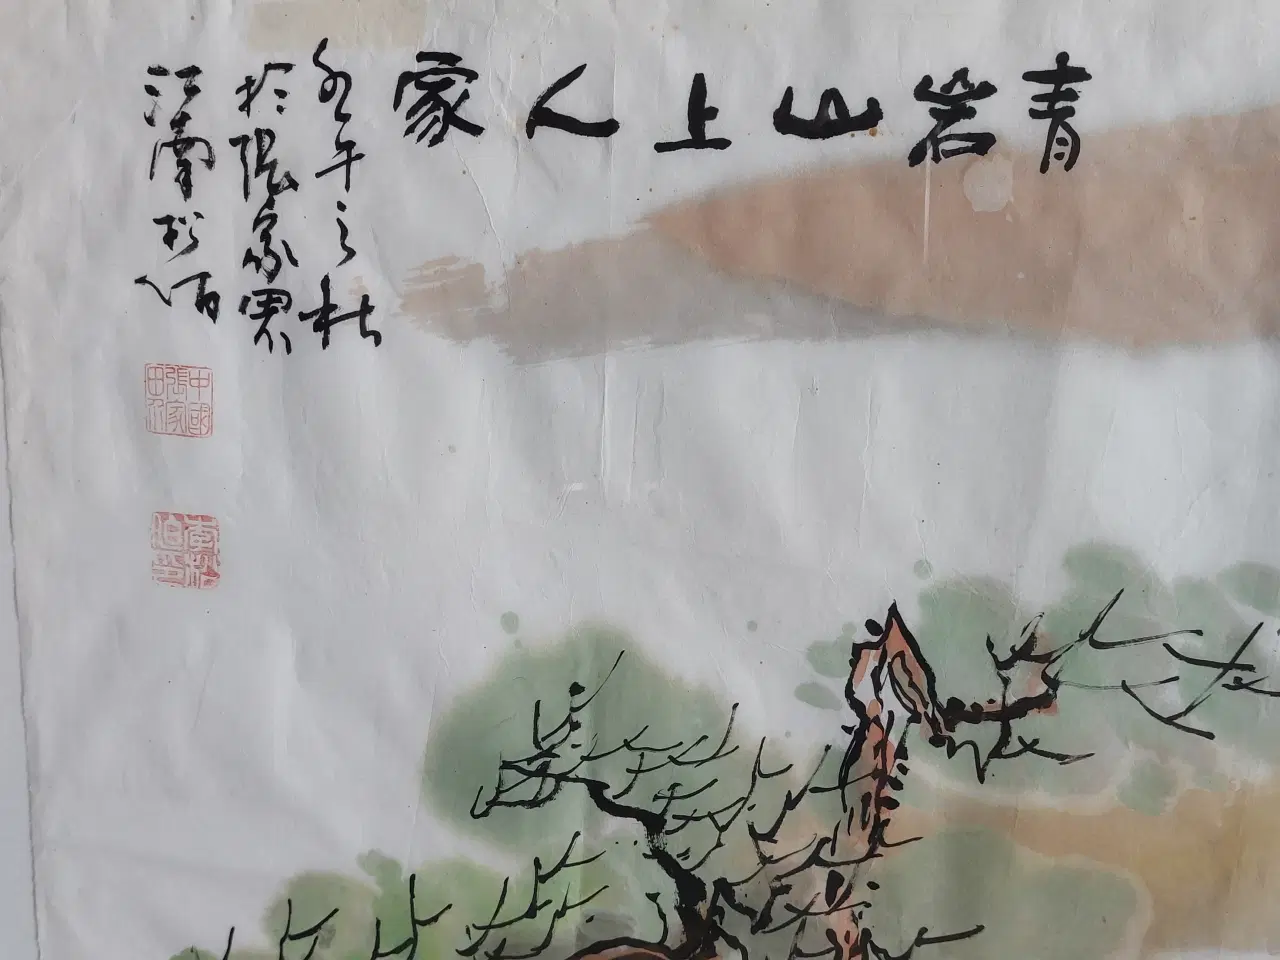 青岩山上人家
午之
於張家界
江南松
中國張家界